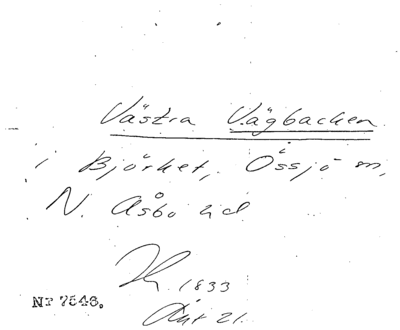 Västra Vägbacken
i Björket, Össjö sn,
N. Åsbo hd
1833
Nr 7546.
21.